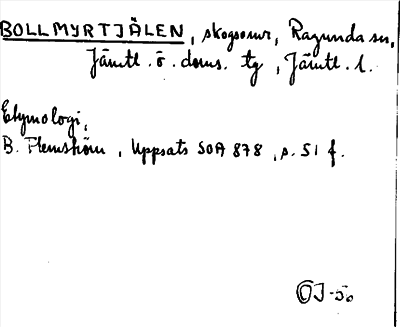 BOLLMYRTJÄLEN, skogsomr, Ragunda sn,
Jämtl. ö. doms. tg, Jämtl. l.
Etymologi,
B. Flemström, Uppsats SOA 878, s. 51 f.
OJ-50